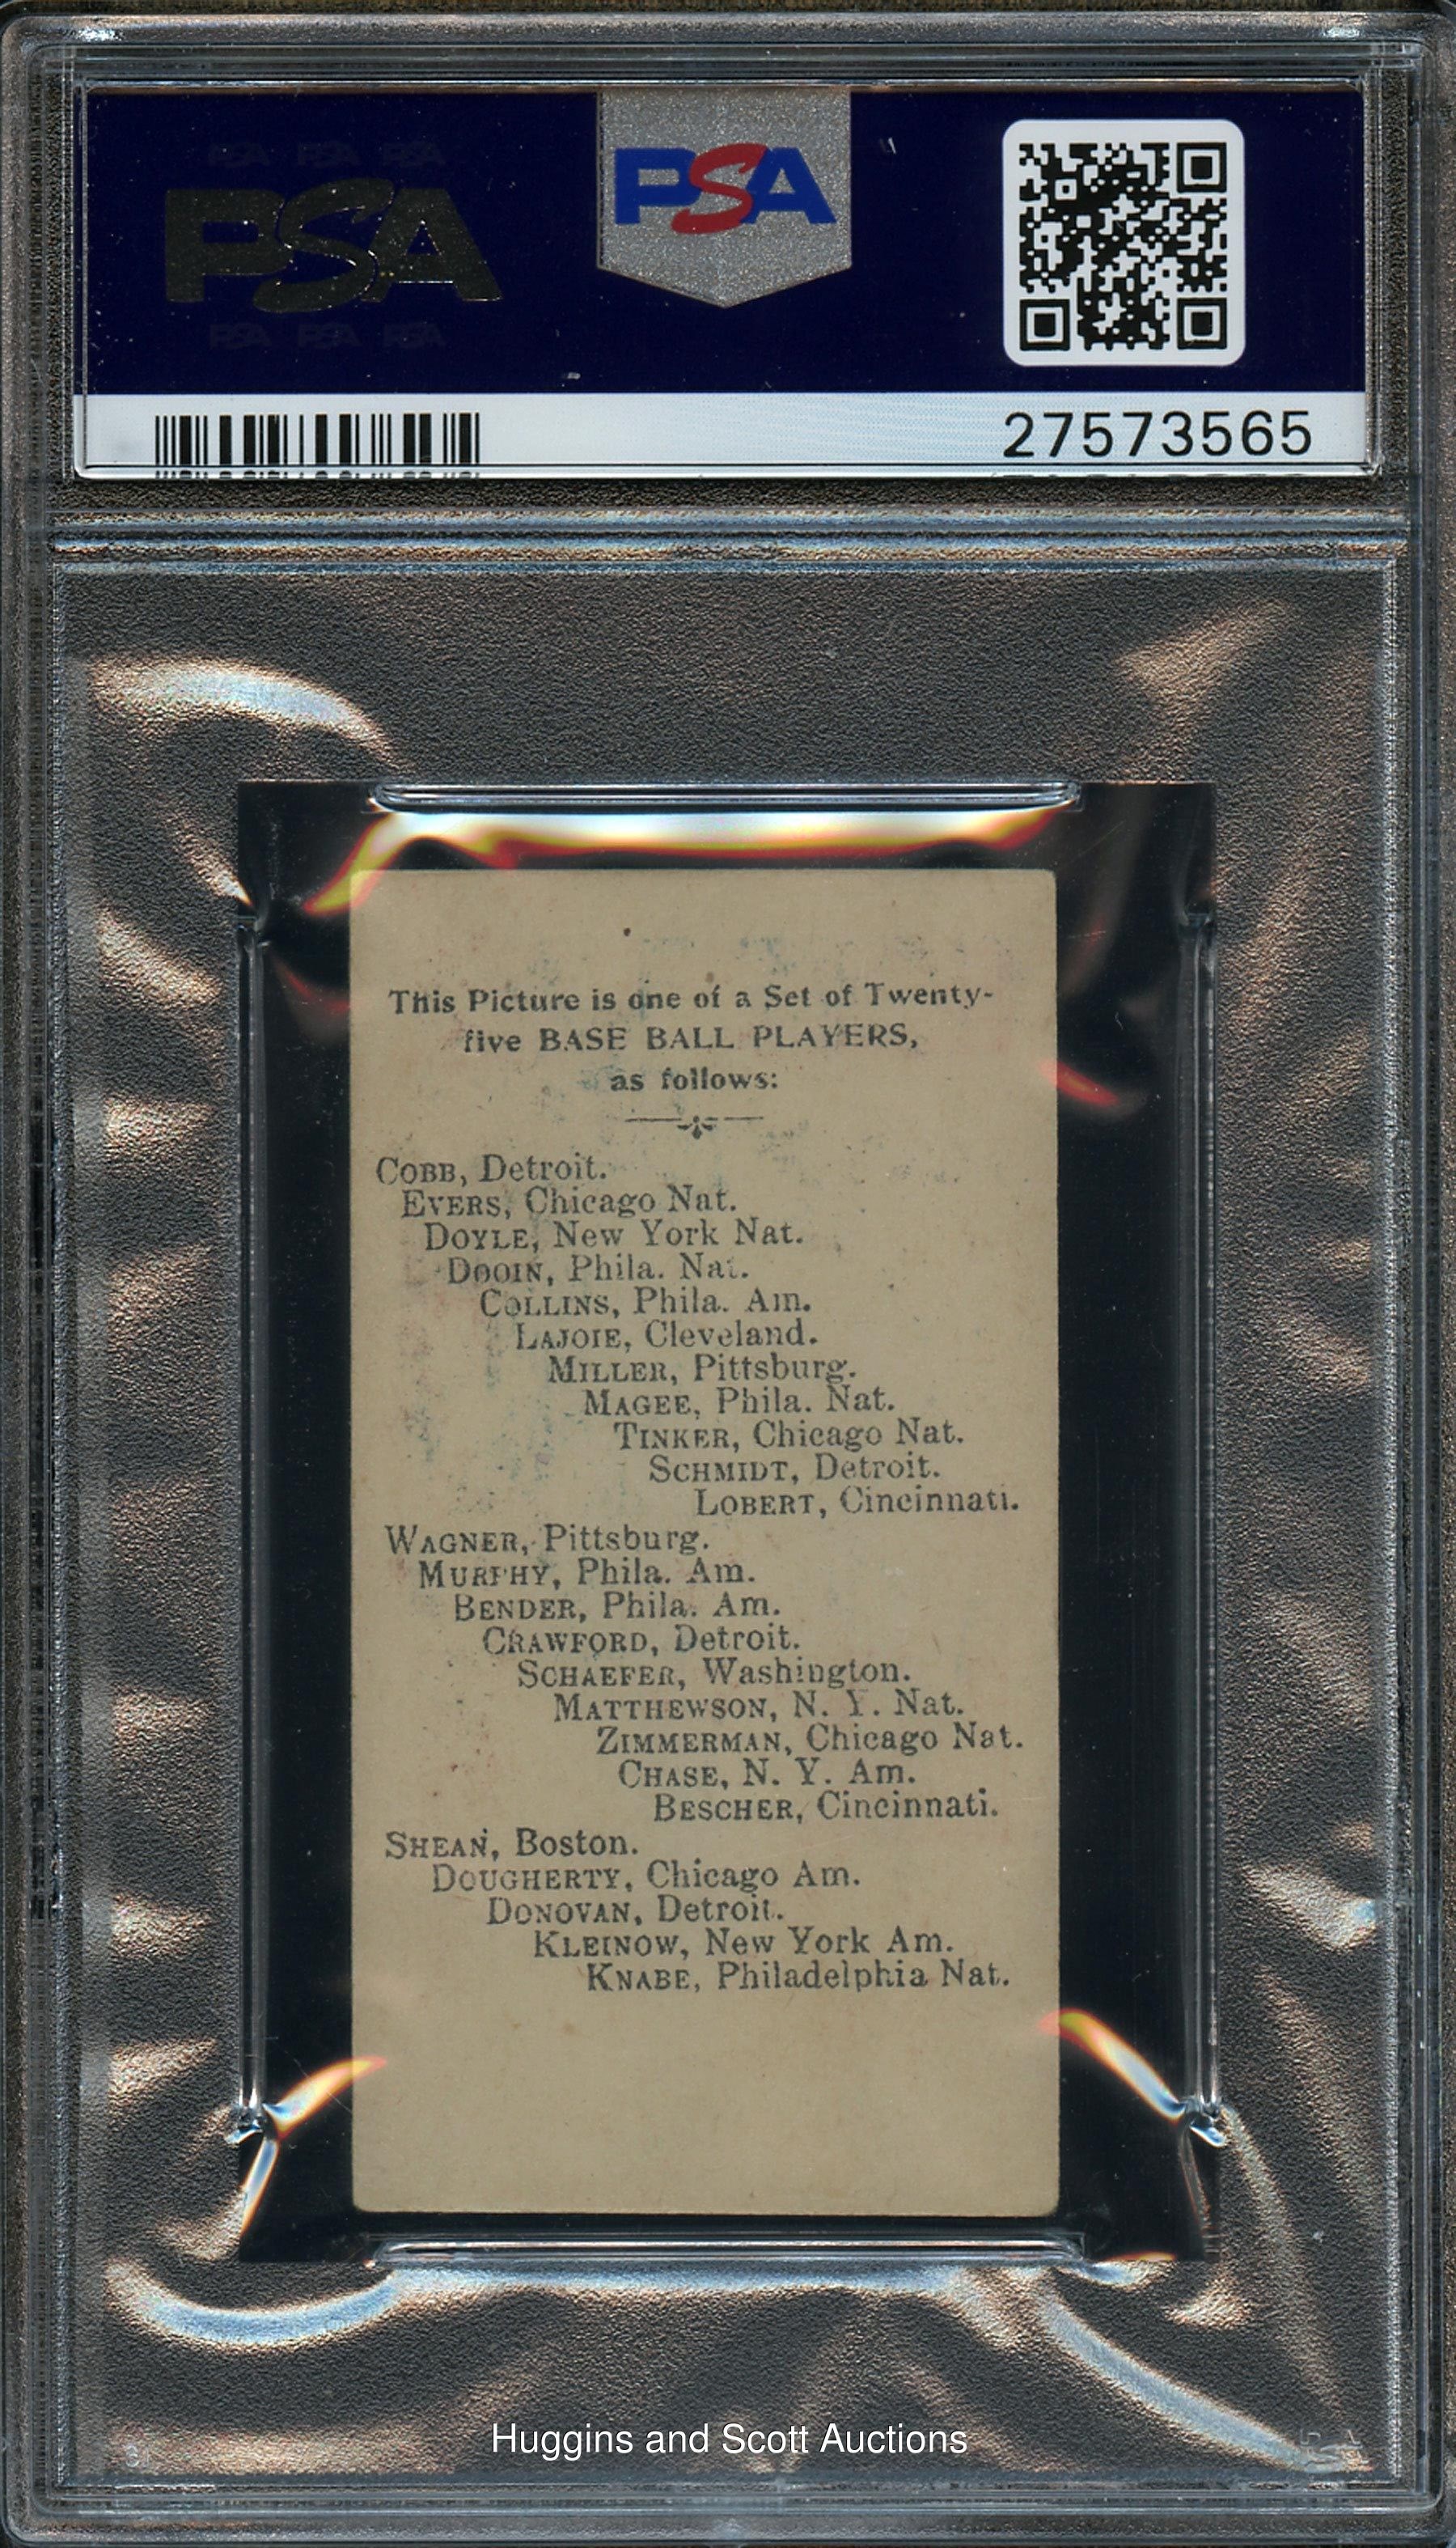 PSA PSA PSA
PSA
PSA PSA PSA
PSA
27573565
This Picture is one of a Set of Twenty-
five BASE BALL PLAYERS,
as follows:
COBB, Detroit.
EVERS, Chicago Nat.
DOYLE, New York Nat.
DOOIN, Phila. Nat.
COLLINS, Phila. Am.
LAJOIE, Cleveland.
MILLER, Pittsburg.
MAGEE, Phila. Nat.
TINKER, Chicago Nat.
SCHMIDT, Detroit.
LOBERT, Cincinnati.
WAGNER, Pittsburg.
MURPHY, Phila. Am.
BENDER, Phila. Am.
CRAWFORD, Detroit.
SCHAEFER, Washington.
MATTHEWSON, N. Y. Nat.
ZIMMERMAN, Chicago Nat.
CHASE, N. Y. Am.
BESCHER, Cincinnati.
SHEAN, Boston.
DOUGHERTY, Chicago Am.
DONOVAN, Detroit.
KLEINOW, New York Am.
KNABE, Philadelphia Nat.
Huggins and Scott Auctions